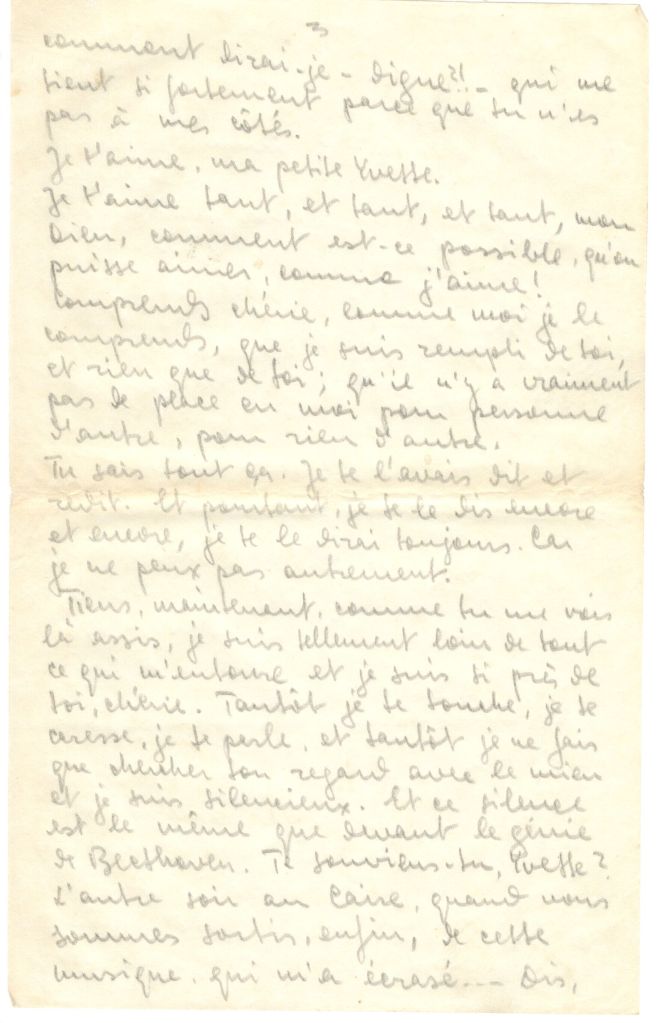 3
comment dirai-je - digue?! - qui me
tient si fortement parce que tu n'es
pas à mes côtés.
Je t'aime, ma petite Yvette.
Je t'aime tant, et tant, et tant, mon
Dieu, comment est-ce possible, qu'on
puisse aimer, comme j'aime!
Comprends chérie, comme moi je le
comprends, que je suis rempli de toi,
et rien que de toi; qu'il n'y a vraiment
pas de place en moi pour personne
d'autre, pour rien d'autre.
Tu sais tout ça. Je te l'avais dit et
redit. Et pourtant, je te le dis encore
et encore, je te le dirai toujours. Car
je ne peux pas autrement.
Tiens, maintenant, comme tu me vois
là assis, je suis tellement loin de tout
ce qui m'entoure et je suis si près de
toi, chérie. Tantôt je te touche, je te
caresse, je te parle, et tantôt je ne fais
que chercher ton regard avec le mien
et je suis silencieux. Et ce silence
est le même que devant le génie
de Beethoven. Te souviens-tu, Yvette?
L'autre soir au Caire, quand nous
sommes sortis, enfin, de cette
musique qui m'a écrasé --- Dis,